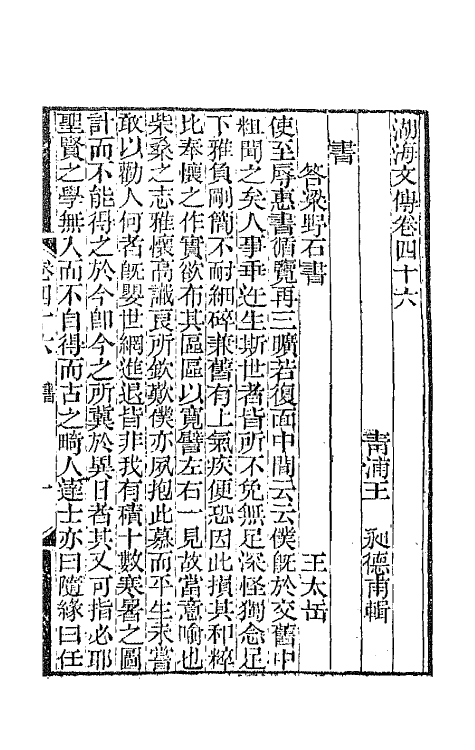 湖海文傳卷四十六
青浦王　昶德甫輯
書
答梁野石書　王太岳
使至辱惠書循覽再三曠若復面中間云云僕旣於交舊中
粗聞之矣人事乖迕生斯世者皆所不免無足深怪獨念足
下雅負剛簡不耐細碎兼舊有上氣疾便恐因此損其和粹
比奉懷之作實欲布其區區以寬譬左右一見故當意喻也
柴桑之志雅懷高識良所欽歎僕亦夙抱此慕而平生未嘗
敢以勸人何者旣嬰世網進退皆非我有積十數寒暑之圖
計而不能得之於今卽今之所冀於異日者其又可指必耶
聖賢之學無入而不自得而古之畸人達士亦曰隨緣曰任
卷四十六　書　一